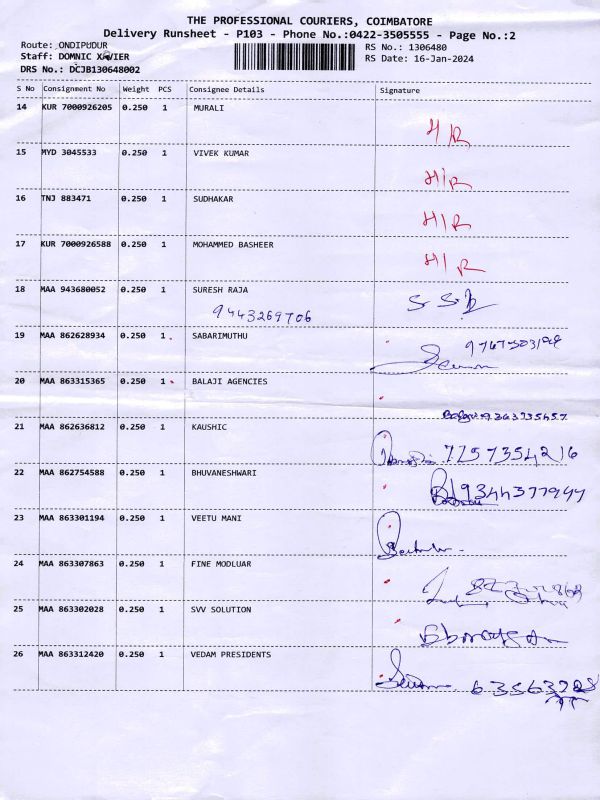 THE PROFESSIONAL COURIERS, COIMBATORE
Delivery Runsheet - P103 - Phone No.:0422-3505555 - Page No.:2
Route: ONDIPUDUR RS No.: 1306480
Staff: DOMNIC XAVIER RS Date: 16-Jan-2024
DRS No.: DCJB130648002
S No Consignment No Weight PCS Consignee Details Signature
14 KUR 7000926205 0.250 1 MURALI
H/R
15 MYD 3045533 0.250 1 VIVEK KUMAR
H/R
16 TNJ 883471 0.250 1 SUDHAKAR
H/R
17 KUR 7000926588 0.250 1 MOHAMMED BASHEER
H/R
18 MAA 943680052 0.250 1 SURESH RAJA
9443269706
19 MAA 862628934 0.250 1 SABARIMUTHU
20 MAA 863315365 0.250 1 BALAJI AGENCIES
21 MAA 862636812 0.250 1 KAUSHIC
7757354216
22 MAA 862754588 0.250 1 BHUVANESHWARI
9344377944
23 MAA 863301194 0.250 1 VEETU MANI
24 MAA 863307863 0.250 1 FINE MODLUAR
25 MAA 863302028 0.250 1 SVV SOLUTION
26 MAA 863312420 0.250 1 VEDAM PRESIDENTS